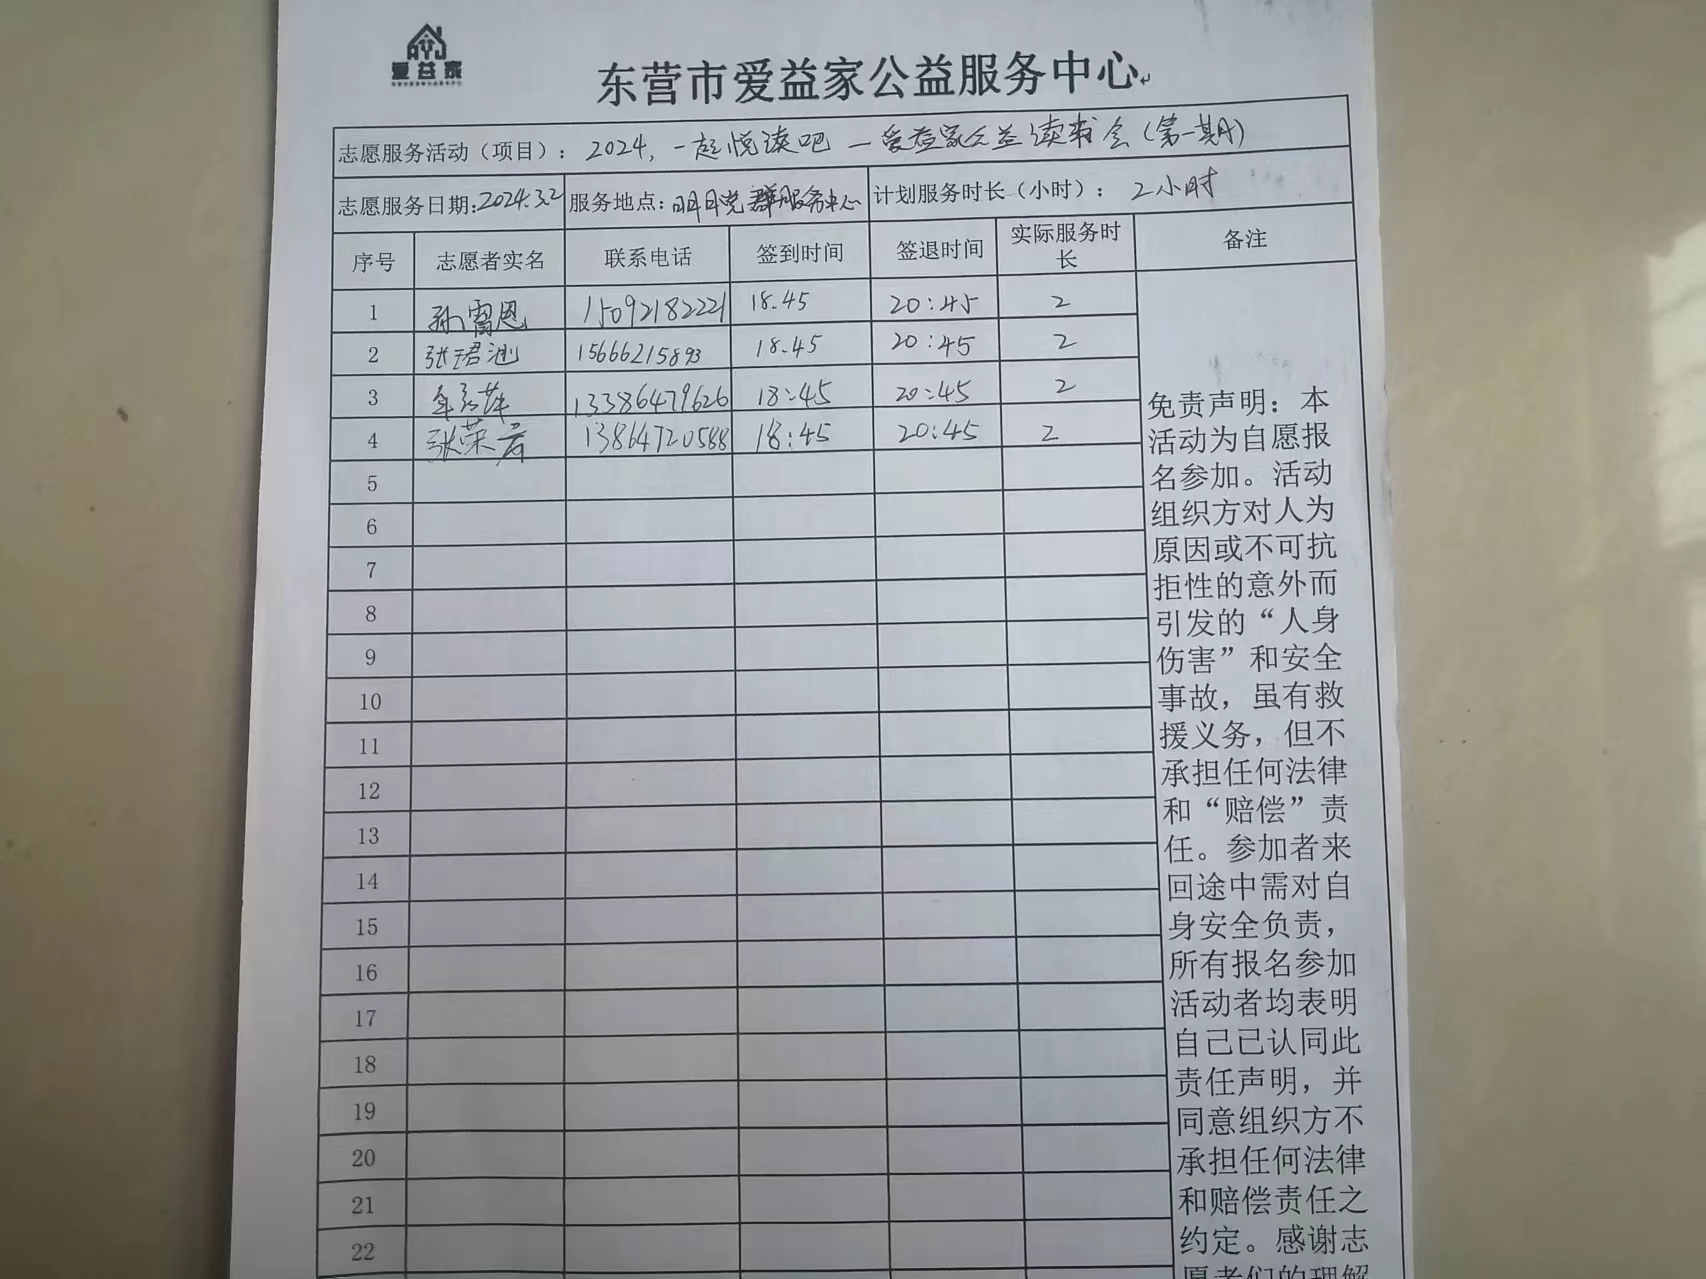 AYJ
爱益家
东营市爱益家公益服务中心
志愿服务活动（项目）： 2024，一起悦读吧 — 爱益家公益读书会（第一期）
志愿服务日期：2024.3.2 服务地点：明月党群服务中心 计划服务时长（小时）： 2小时
序号 志愿者实名 联系电话 签到时间 签退时间 实际服务时长 备注
1 孙雷恩 15092182221 18.45 20:45 2
2 张珺迪 15666215893 18.45 20:45 2
3 13386479626 18:45 20:45 2
4 张荣岩 13864720588 18:45 20:45 2
5
6
7
8
9
10
11
12
13
14
15
16
17
18
19
20
21
22
免责声明：本
活动为自愿报
名参加。活动
组织方对人为
原因或不可抗
拒性的意外而
引发的“人身
伤害”和安全
事故，虽有救
援义务，但不
承担任何法律
和“赔偿”责
任。参加者来
回途中需对自
身安全负责，
所有报名参加
活动者均表明
自己已认同此
责任声明，并
同意组织方不
承担任何法律
和赔偿责任之
约定。感谢志
愿者们的理解